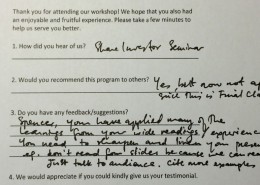 Thank you for attending our workshop! We hope that you also had
an enjoyable and fruitful experience. Please take a few minutes to
help us serve you better.
1. How did you hear of us? Share Investor Seminar
2. Would you recommend this program to others? Yes, but now not
since this is Final Class
3. Do you have any feedback/suggestions?
Spencer, you have applied many of the
learnings from your wide readings/experience
You need to sharpen and your
eg. Don't read from slides because we can read
Just talk to audience. Cite more examples
4. We would appreciate if you could kindly give us your testimonial.